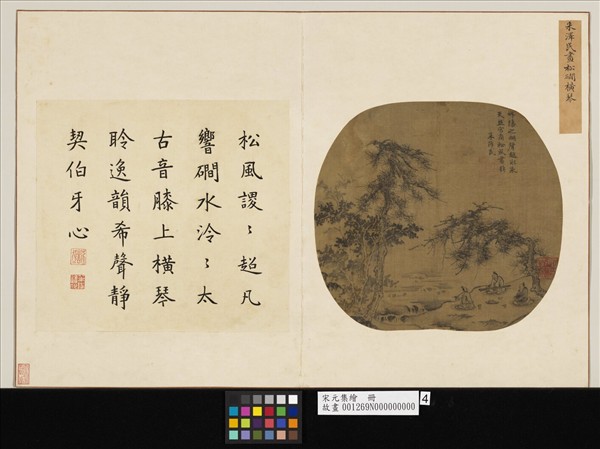 朱澤民畫松磵橫琴
朱澤民
松風謖〻超凡
響磵水泠〻太
古音膝上橫琴
聆逸韻希聲靜
契伯牙心
宋元集繪 冊
故畫 001269N000000000
4